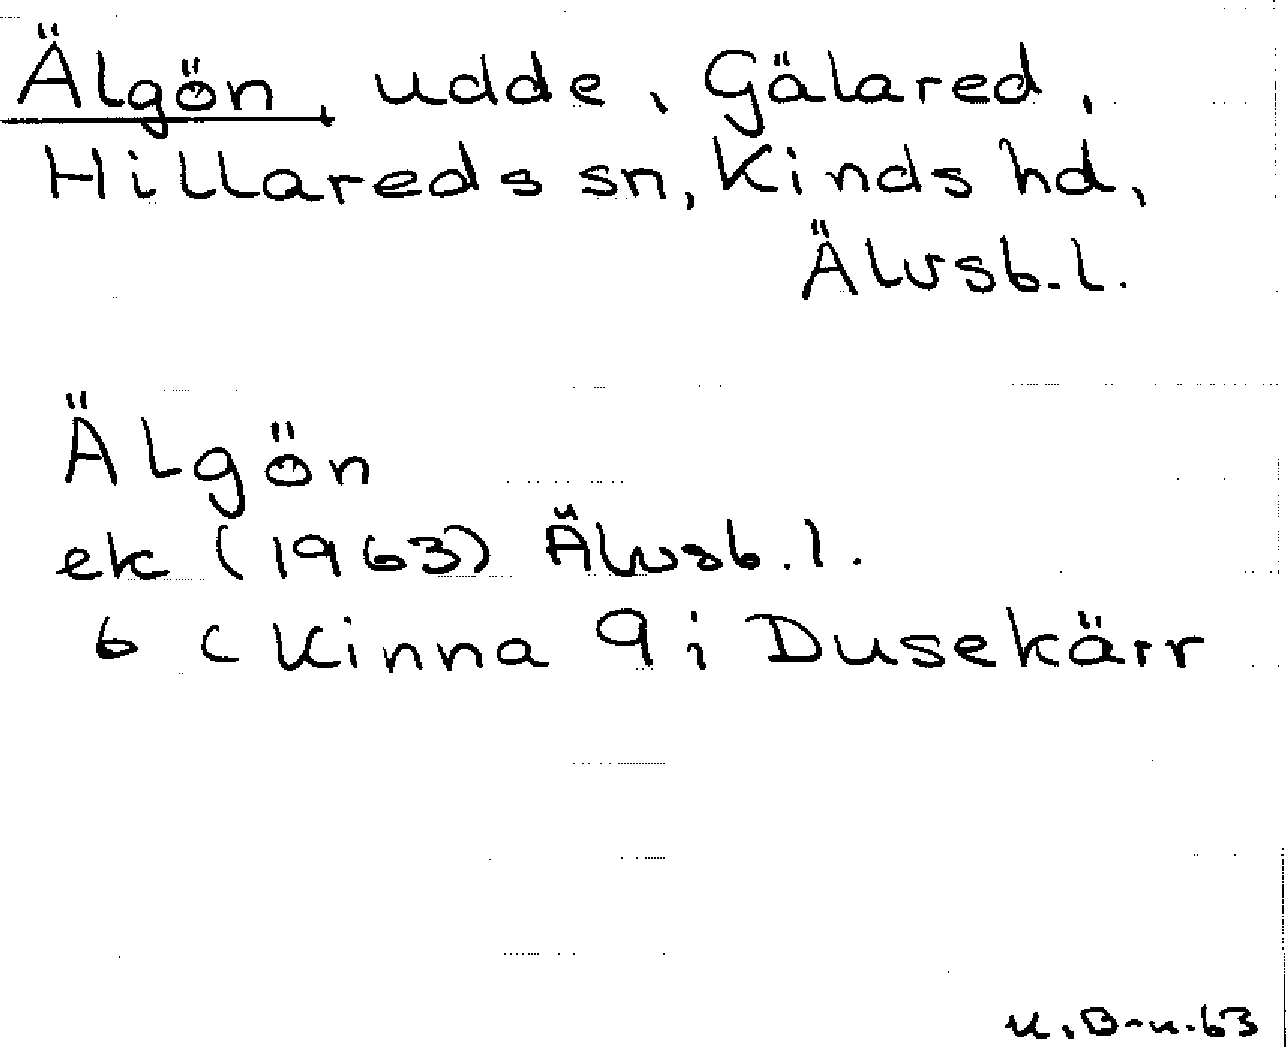 Älgön, udde, Gälared,
Hillareds sn, Kinds hd,
Älvsb. l.
Älgön
ek (1963) Älvsb. l.
6 C Kinna 9 i Dusekärr